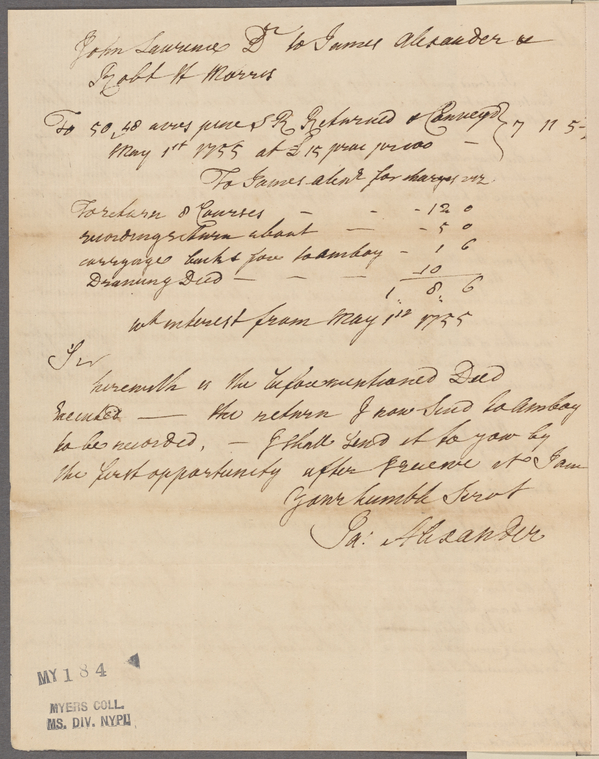 John Lawrence Dr to James Alexander &
Robt H Morris
To 50,48 acres pine S R Returned & Conveyd
May 1st 1755 at £15 proc pr 100 — 7 11 5
To James Alexr for charges viz
To return & Courses — - - 12 0
recording return about — - 5 0
carryage back & fore to amboy - 1 6
Drawing Deed — — — 10
1 " 8 " 6
wt interest from May 1st 1755
Sir
herewith is the beforementioned Deed
Executed — the return I now Send to Amboy
to be recorded, — I shall send it to you by
the first opportunity after I receive it I am
Your humble Servt
Ja: Alexander
MY 184
MYERS COLL.
MS. DIV. NYPL